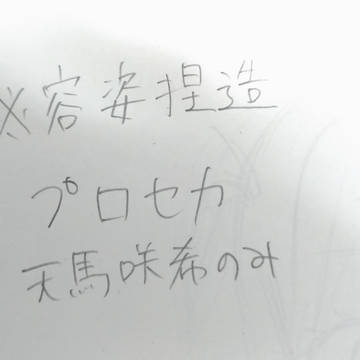 ※容姿捏造
プロセカ
天馬咲希のみ